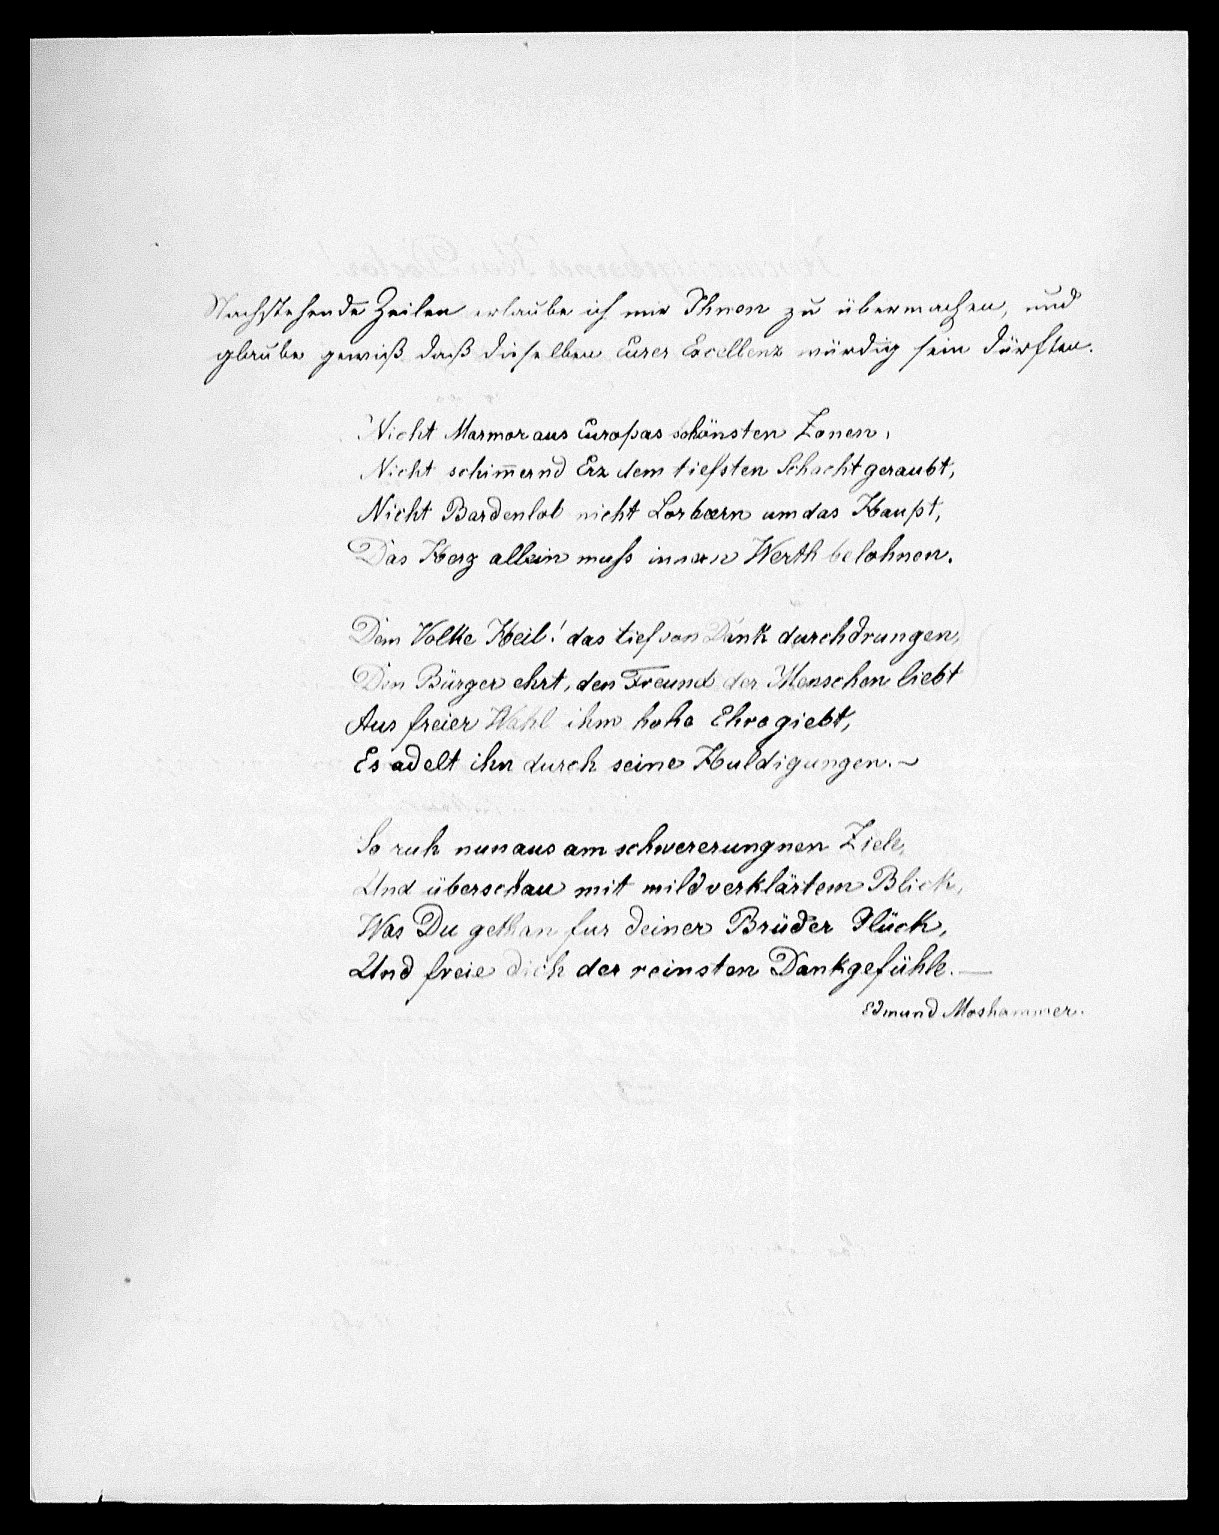 Nachstehende Zeilen erlaube ich mir Ihnen zu übermachen, und
glaube gewiß, daß dieselben Eurer Excellenz würdig sein dürften.
Nicht Marmor aus Europas schönsten Zonen,
Nicht schim̅ernd Erz dem tiefsten Schacht geraubt,
Nicht Bardenlob nicht Lorbeern um das Haupt,
Das Herz allein muſs innern Werth belohnen.
Dem Volke Heil! das tief von Dank durchdrungen,
Den Bürger ehrt, den Freund der Menschen liebt
Aus freier Wahl ihm hohe Ehre giebt,
Es adelt ihn durch seine Huldigungen.~
So ruh nun aus am schwererungnen Ziele,
Und überschau mit mildverklärtem Blick,
Was Du gethan fur deiner Brüder Glück,
Und freie dich der reinsten Dankgefühle.—
Edmund Moshammer.